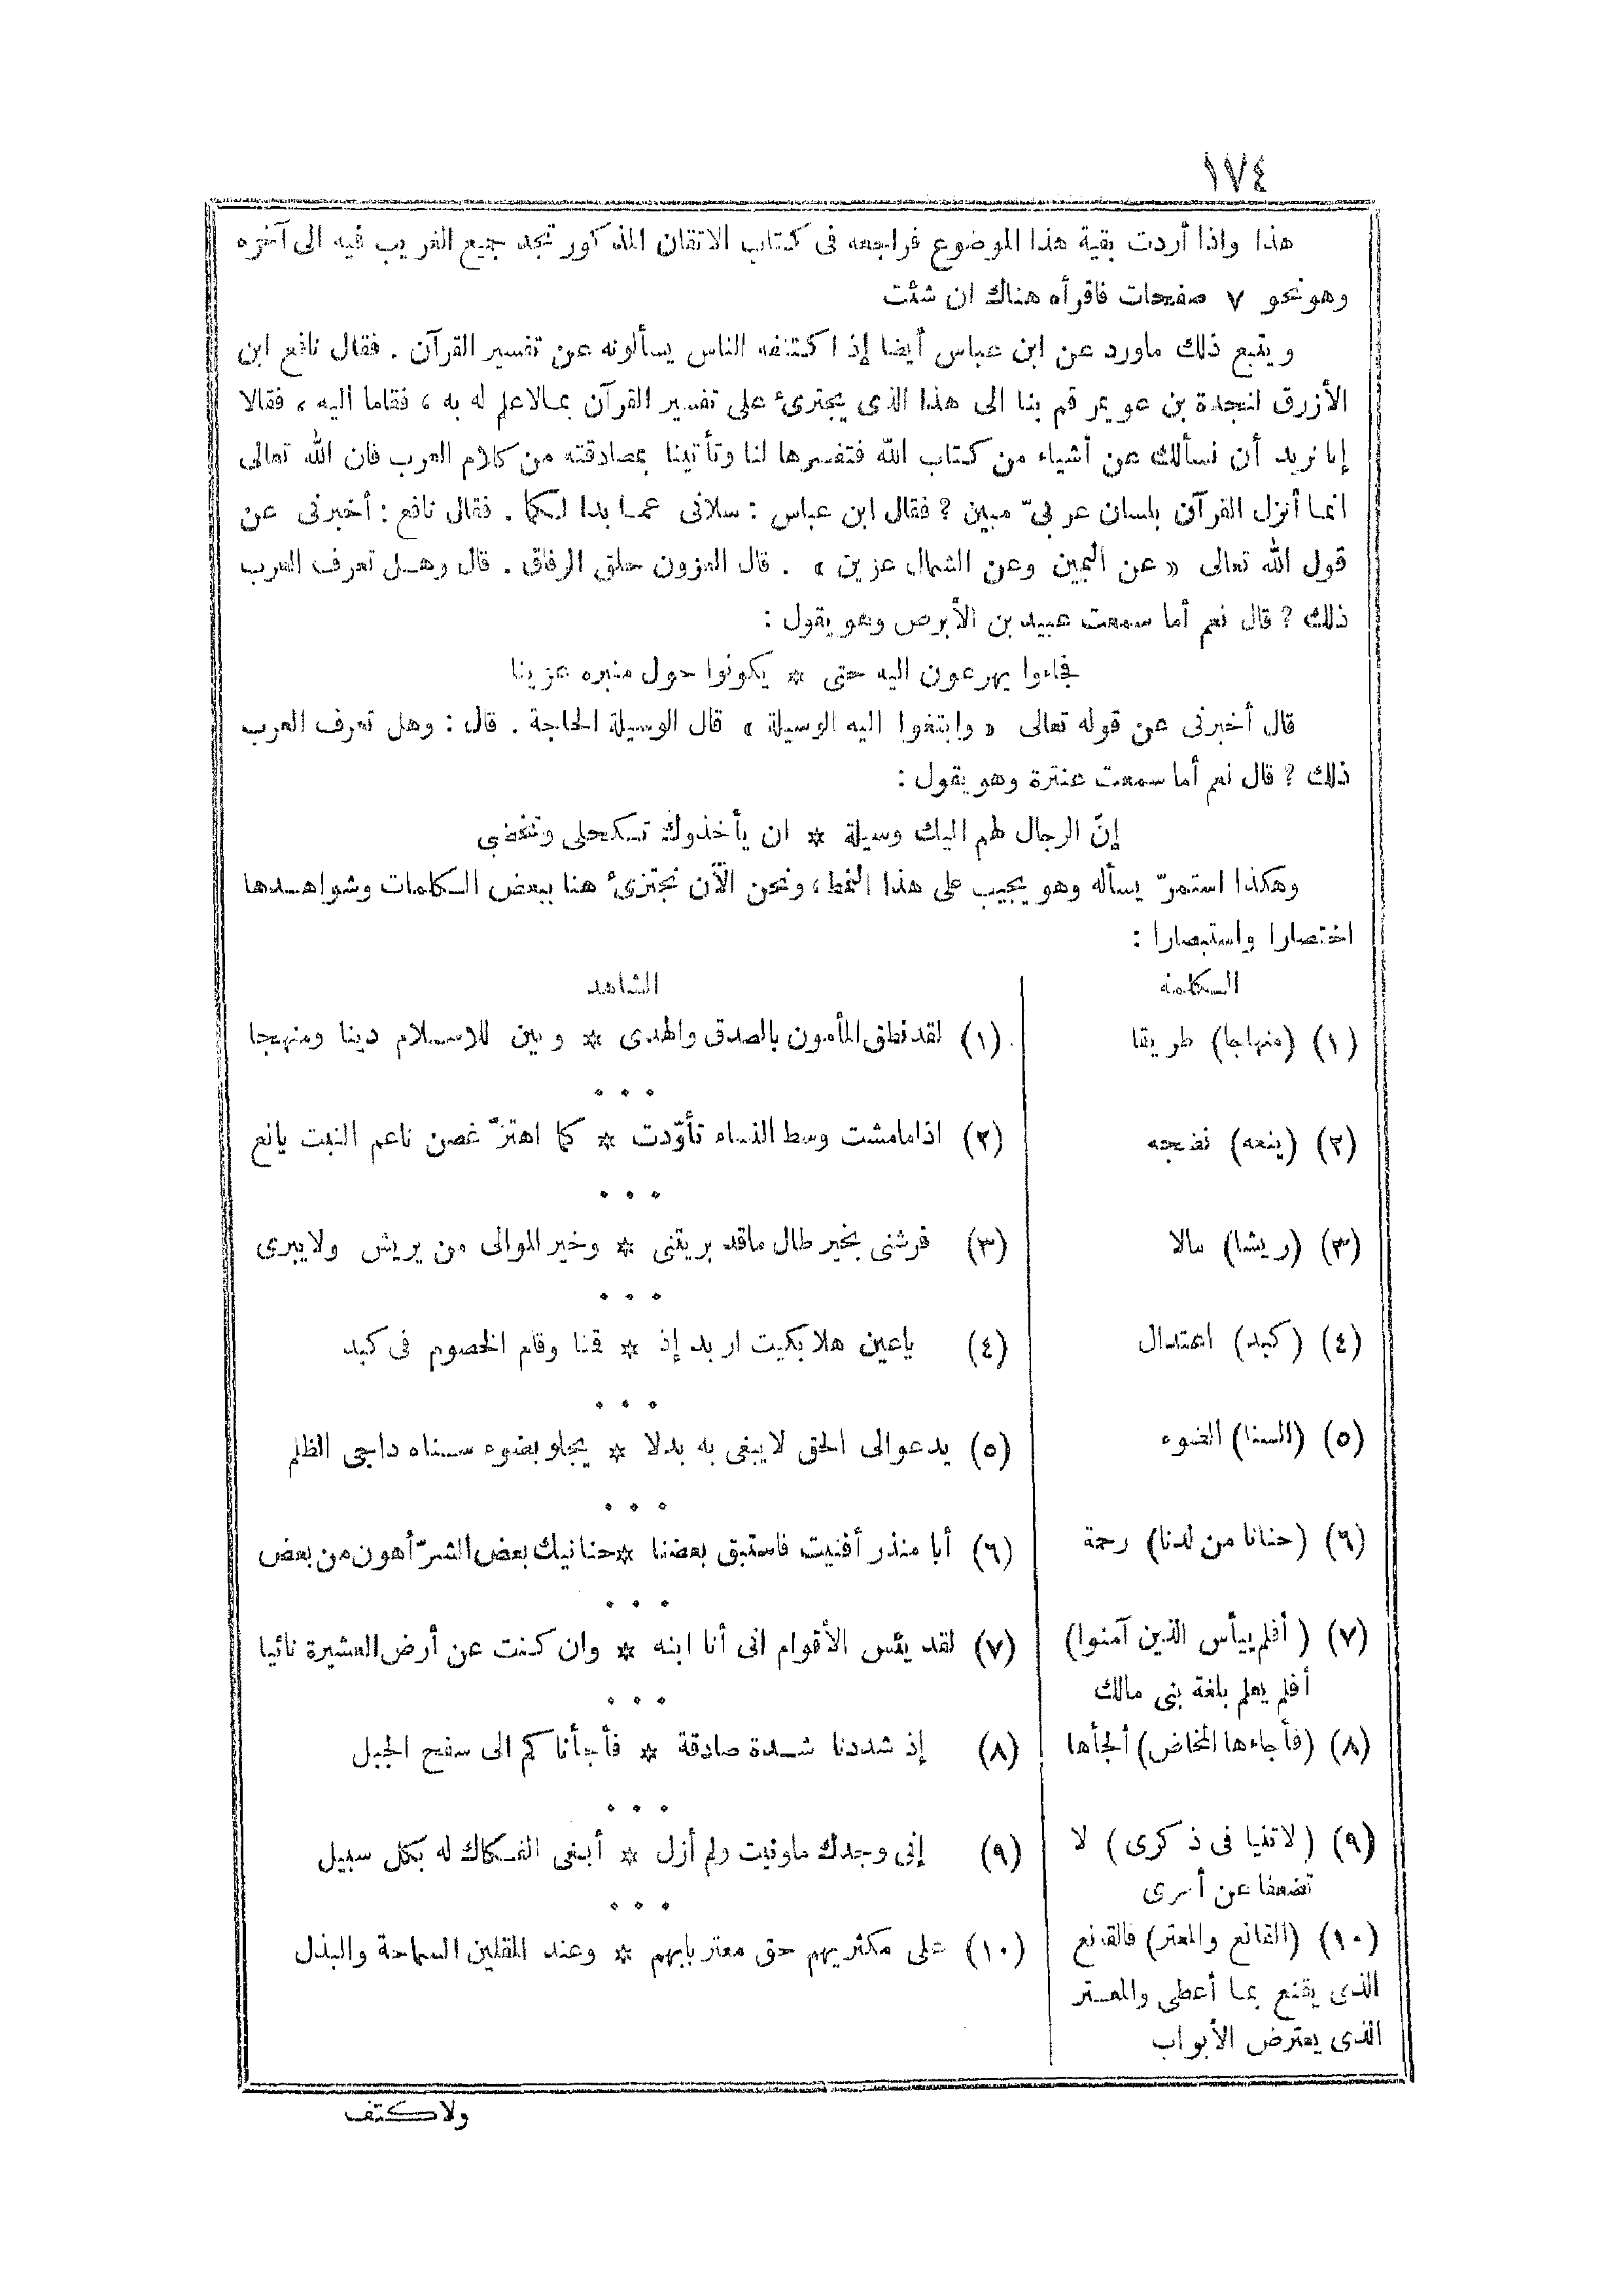 ١٧٤
هذا واذا أردت بقية هذا الموضوع فراجعه فى كتاب الاتقان المذكور تجد جميع الغريب فيه الى آخره
وهو نحو ٧ صفحات فاقرأه هناك ان شئت
ويتبع ذلك ماورد عن ابن عباس أيضا إذ اكتنفه الناس يسألونه عن تفسير القرآن . فقال نافع ابن
الأزرق لنجدة بن عويمر قم بنا الى هذا الذى يجترئ على تفسير القرآن بمالاعلم له به ، فقاما اليه ، فقالا
إنا نريد أن نسألك عن أشياء من كتاب الله فتفسرها لنا وتأتينا بمصادقته من كلام العرب فان الله تعالى
انما أنزل القرآن بلسان عربىّ مبين ? فقال ابن عباس : سلانى عما بدا لكما . فقال نافع : أخبرنى عن
قول الله تعالى « عن اليمين وعن الشمال عزين » . قال العزون حلق الرفاق . قال وهل تعرف العرب
ذلك ? قال نعم أما سمعت عبيد بن الأبرص وهو يقول :
فجاءوا يهرعون اليه حتى * يكونوا حول منبره عزينا
قال أخبرنى عن قوله تعالى « وابتغوا اليه الوسيلة » قال الوسيلة الحاجة . قال : وهل تعرف العرب
ذلك ? قال نعم أما سمعت عنترة وهو يقول :
إنّ الرجال لهم اليك وسيلة * ان يأخذوك تكحلى وتخضبى
وهكذا استمرّ يسأله وهو يجيب على هذا النمط ، ونحن الآن نجتزئ هنا ببعض الكلمات وشواهدها
اختصارا واستبصارا :
الكلمة
الشاهد
(١) (منهاجا) طريقا
(١) لقد نطق المأمون بالصدق والهدى * وبين للاسلام دينا ومنهجا
(٢) (ينعه) نضجه
(٢) اذا مامشت وسط النساء تأوّدت * كما اهتزّ غصن ناعم النبت يانع
(٣) (وريشا) مالا
(٣) فرشنى بخير طال ماقد بريتنى * وخير الموالى من يريش ولايبرى
(٤) (كبد) اعتدال
(٤) ياعين هلا بكيت اربد إذ * قمنا وقام الخصوم فى كبد
(٥) (السنا) الضوء
(٥) يدعو الى الحق لايبغى به بدلا * يجلو بضوء سناه داجى الظلم
(٦) (حنانا من لدنا) رحمة
(٦) أبا منذر أفنيت فاستبق بعضنا * حنانيك بعض الشرّ أهون من بعض
(٧) (أفلم ييأس الذين آمنوا)
أفلم يعلم بلغة بنى مالك
(٧) لقد يئس الأقوام انى أنا ابنه * وان كنت عن أرض العشيرة نائيا
(٨) (فأجاءها المخاض) ألجأها
(٨) إذ شددنا شدة صادقة * فأجأناكم الى سفح الجبل
(٩) (لاتنيا فى ذكرى) لا
تضعفا عن أمرى
(٩) إنى وجدك ماونيت ولم أزل * أبغى الفكاك له بكل سبيل
(١٠) (القانع والمعتر) فالقانع
الذى يقنع بما أعطى والمعتر
الذى يعترض الأبواب
(١٠) على مكثريهم حق معتر بابهم * وعند المقلين السماحة والبذل
ولاكتف